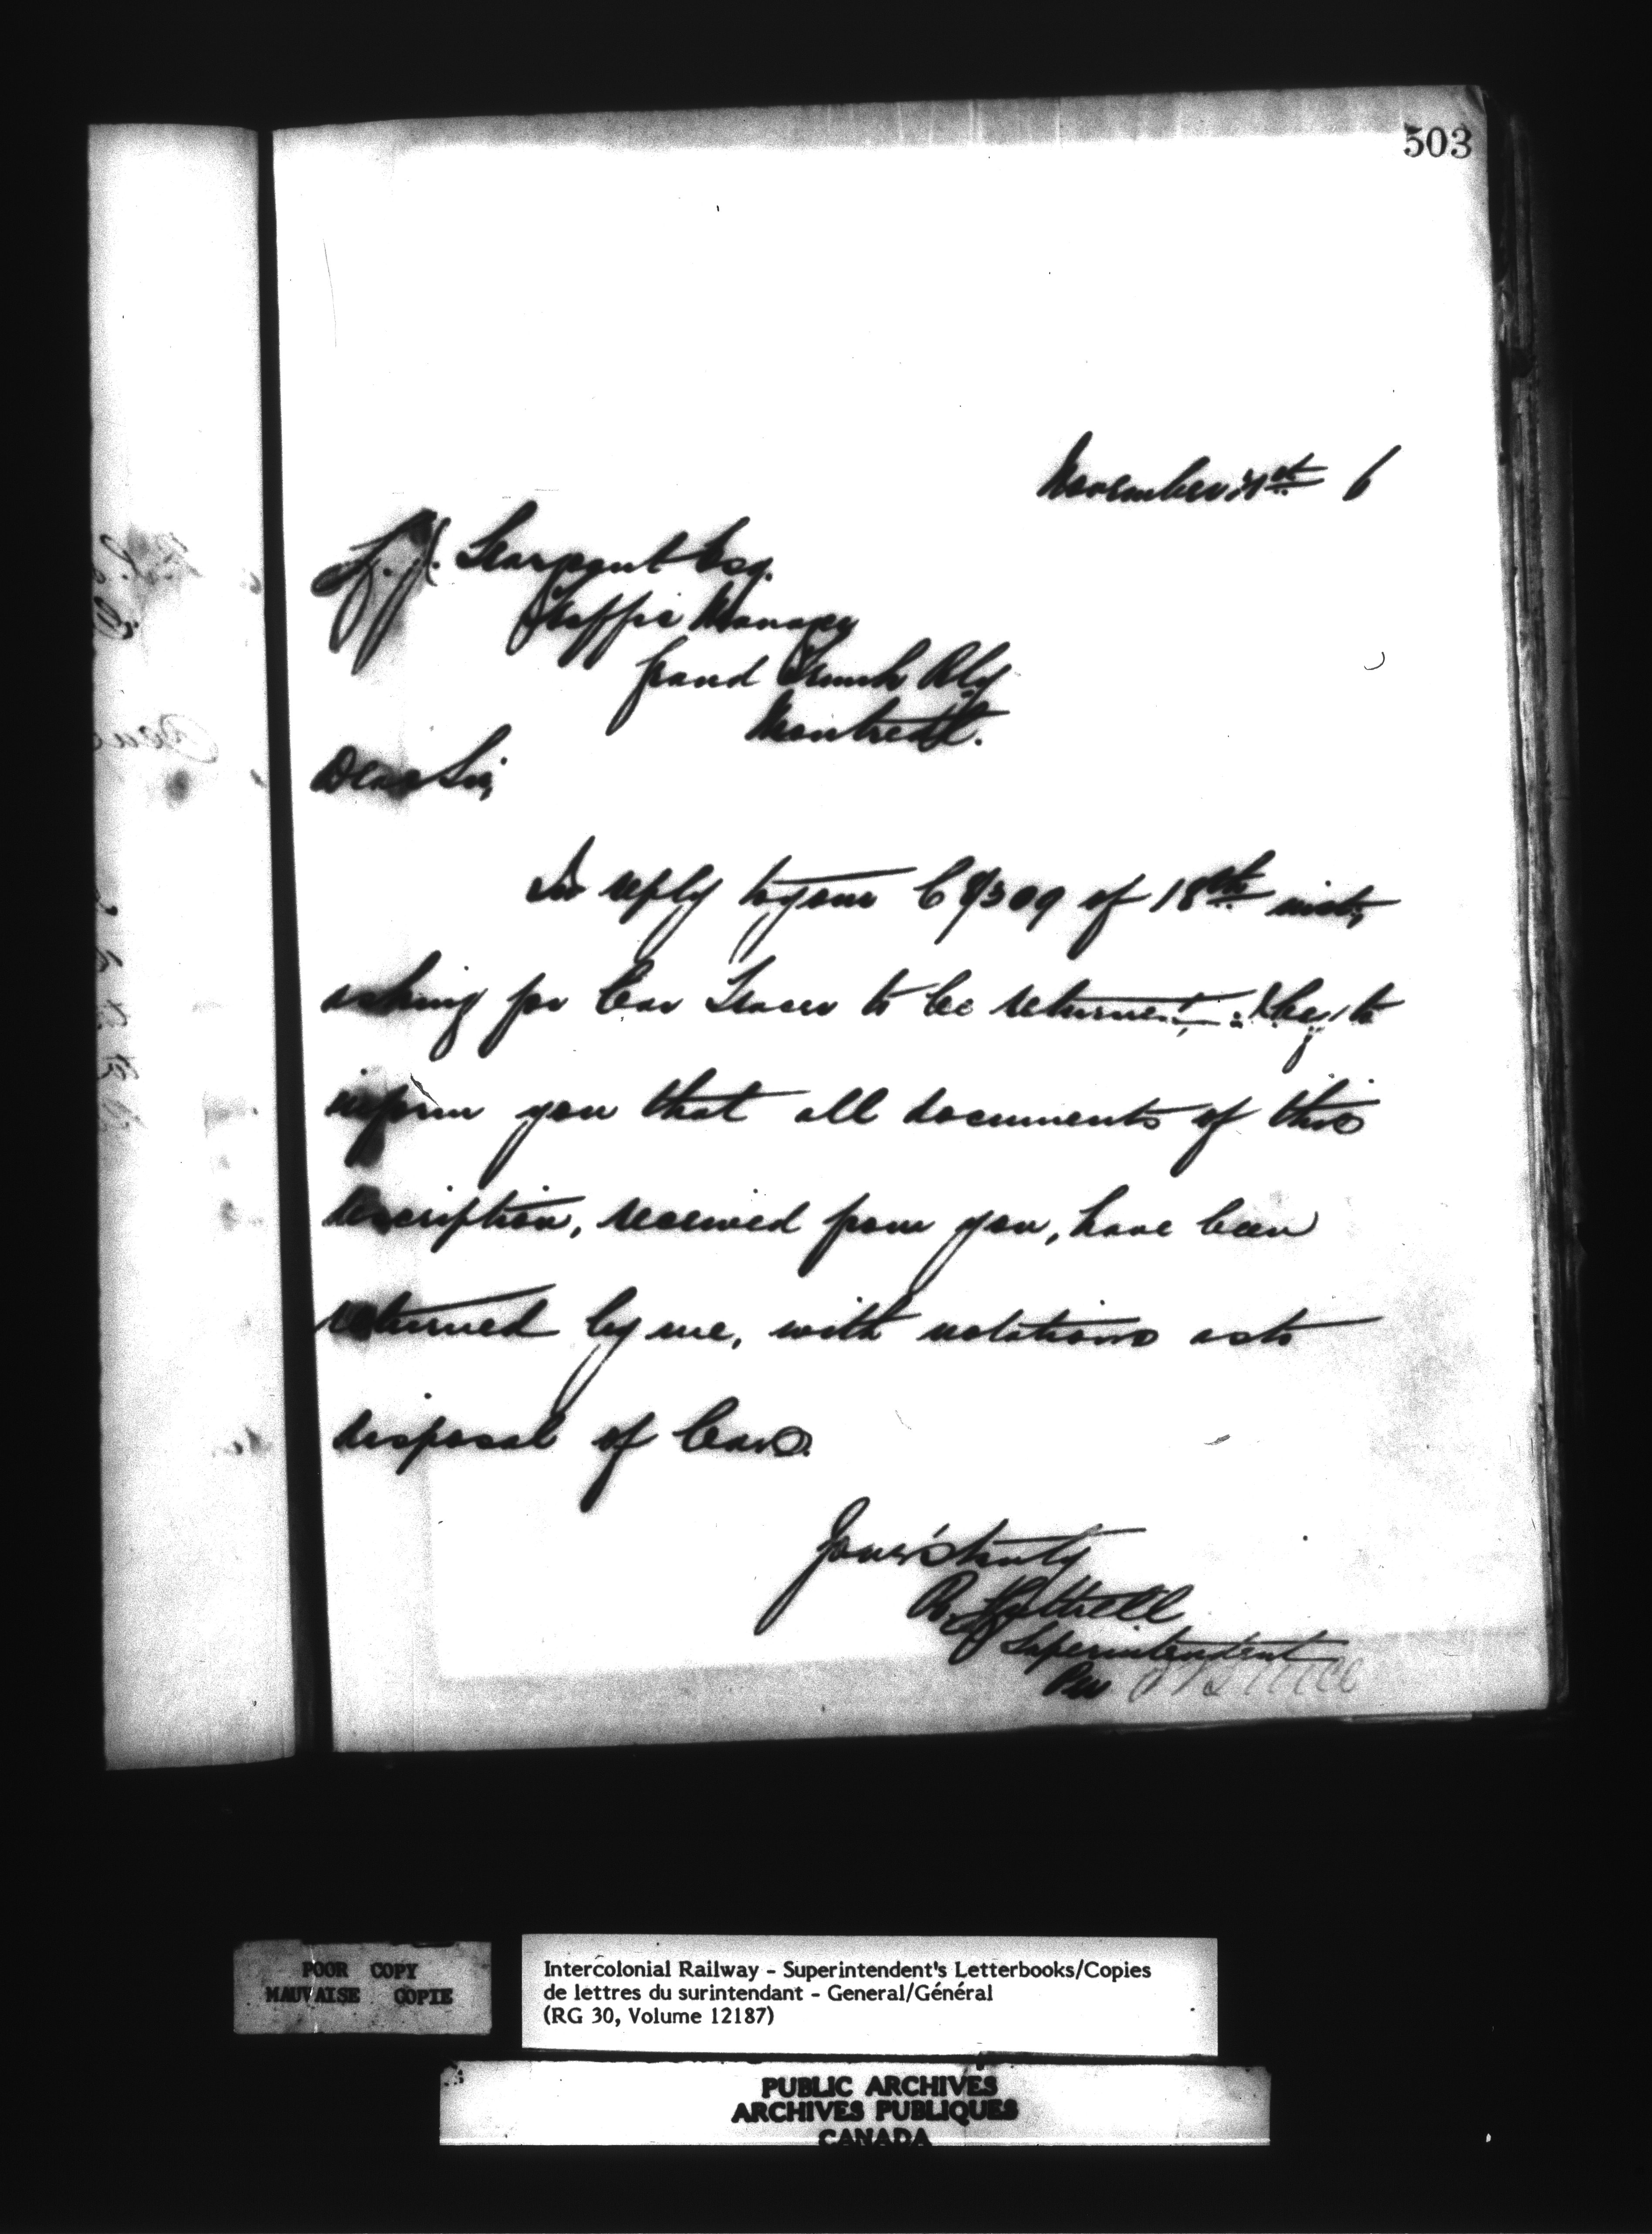 503
November th 6
L. J. Seargent Esq.
Traffic Manager
Grand Trunk Rly
Montreal.
Dear Sir,
In reply to your C of 18th inst,
asking for Car Tracer to be returned. I beg to
inform you that all documents of this
description, received from you, have been
returned by me, with notations as to
disposal of Cars.
Yours truly
Superintendent
Per
POOR COPY
MAUVAISE COPIE
Intercolonial Railway - Superintendent's Letterbooks/Copies
de lettres du surintendant - General/Général
(RG 30, Volume 12187)
PUBLIC ARCHIVES
ARCHIVES PUBLIQUES
CANADA